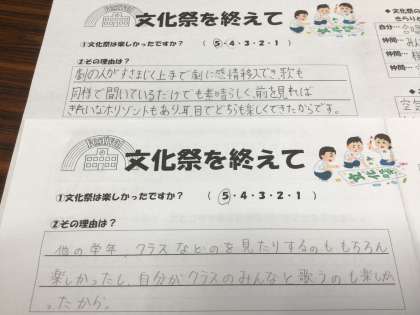 文化祭を終えて
①文化祭は楽しかったですか？ （ 5・4・3・2・1 ）
②その理由は？
劇の人がすさまじく上手で劇に感情移入でき、歌も
同様で聞いているだけでも素晴らしく、前を見れば
きれいなホリゾントもあり、耳目でどちらも楽しくできたからです。
自分…
仲間…
仲間…
文化祭を終えて
①文化祭は楽しかったですか？ （ 5・4・3・2・1 ）
②その理由は？
他の学年、クラスなどのを見たりするのももちろん
楽しかったし、自分がクラスのみんなと歌うのも楽しか
ったから。